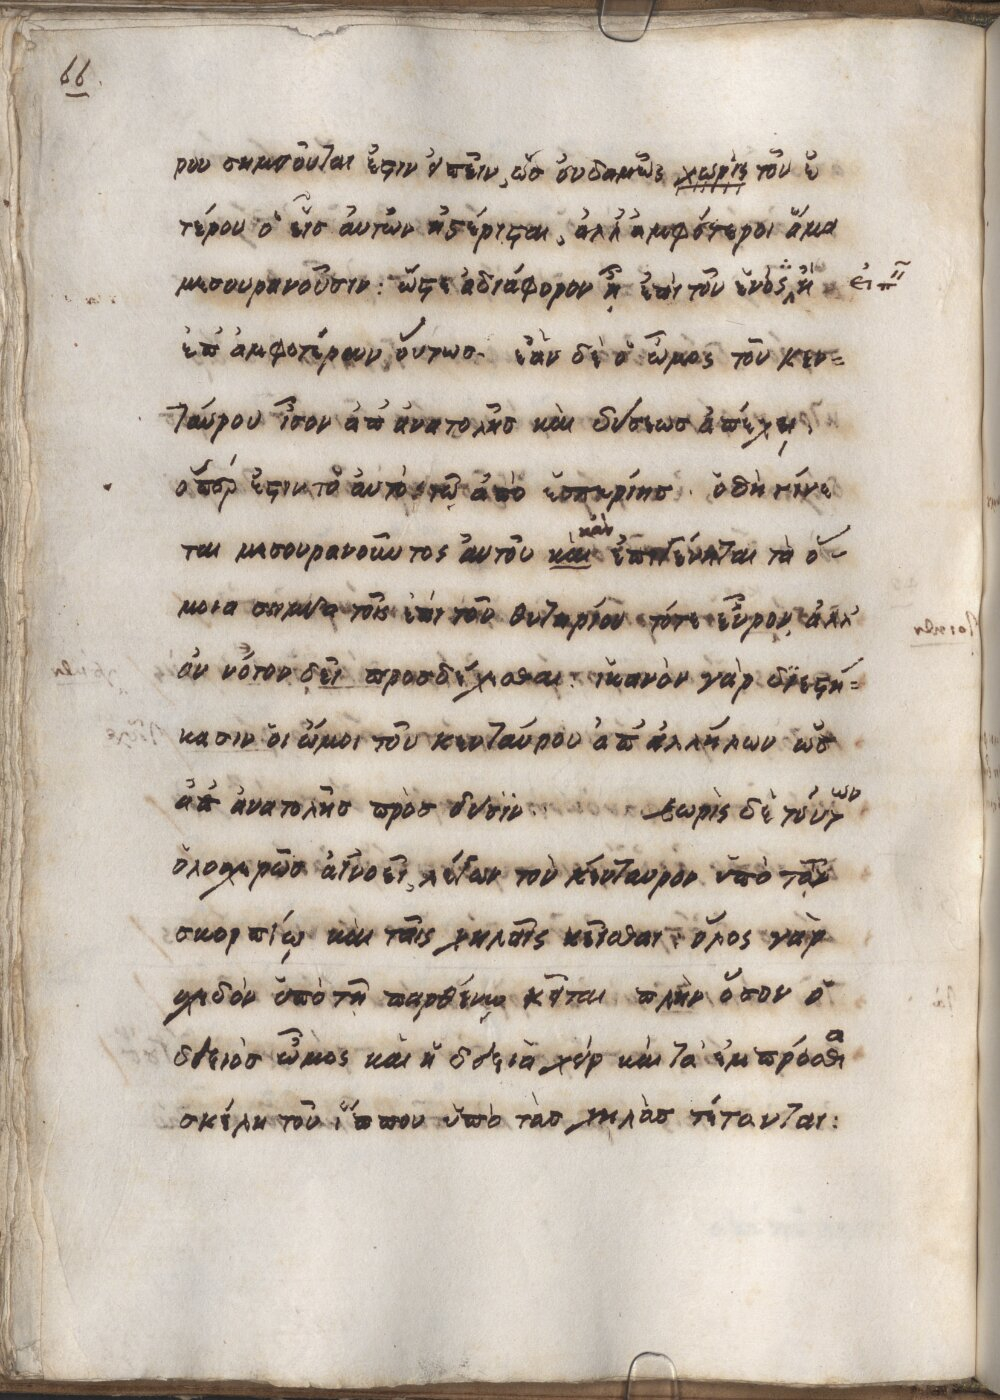 66.
ρου σημοῦται ἐστιν ἐιπεῖν, ὡσ ὀυδαμῶς χωρὶς τοῦ ἑ
τέρου ὁ εἷσ ἀυτῶν ἀστέριται, ἀλλ' ἀμφότεροι ἅμα
μεσουρανοῦσιν: ὥστε ἀδιάφορον ἢ ἐπι τοῦ ἑνὸς ἢ
ἐπ' ἀμφοτέρων οὕτωσ. ἐὰν δὲ ὁ ὦμος τοῦ κεν=
ταύρου ἶσον ἀπ' ἀνατολῆσ καὶ δύσεωσ ἀπέχῃ,
ὅπερ ἐστιν τὸ ἀυτὸ τῷ ἀπὸ ἑσπερίησ. γίνε
ται μεσουρανοῦντος ἀυτοῦ καὶ τὰ ὅ-
κἂν
μοια σημεῖα τοῖς ἐπι τοῦ θυτηρίου τότε εὗρον, ἀλλ'
ὀν νότον δεῖ προσδέχεσθαι. ἱκανὸν γὰρ διεστή=
κασιν ὁι ὦμοι τοῦ κενταύρου ἀπ' ἀλλήλων ὡσ
ἀπ' ἀνατολῆσ πρὸσ δύσιν χωρὶς δὲ τούτων
ὁλοσχερῶσ ἀγνοεῖ, λέγων τὸν κένταυρον ὑπὸ τῷ
σκορπίῳ καὶ ταῖς χηλαῖς κεῖσθαι. ὅλος γὰρ
σχεδὸν ὑπὸ τῇ παρθένῳ κεῖται πλὴν ὅσον ὁ
δεξιὸσ ὦμος καὶ ἡ δεξιὰ χεὶρ καὶ τὰ ἐμπρόσθια
σκέλη τοῦ ἵππου ὑπὸ τὰσ χηλὰσ τέτανται: